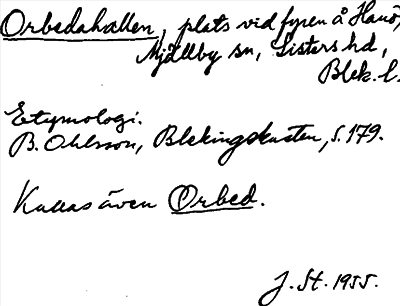 Orbedahallen, plats vid fyren å Hanö,
Mjällby sn, Listers hd,
Blek. l.
Etymologi:
B. Ohlsson, Blekingekusten, s. 179.
Kallas även Orbed.
J. St. 1955.